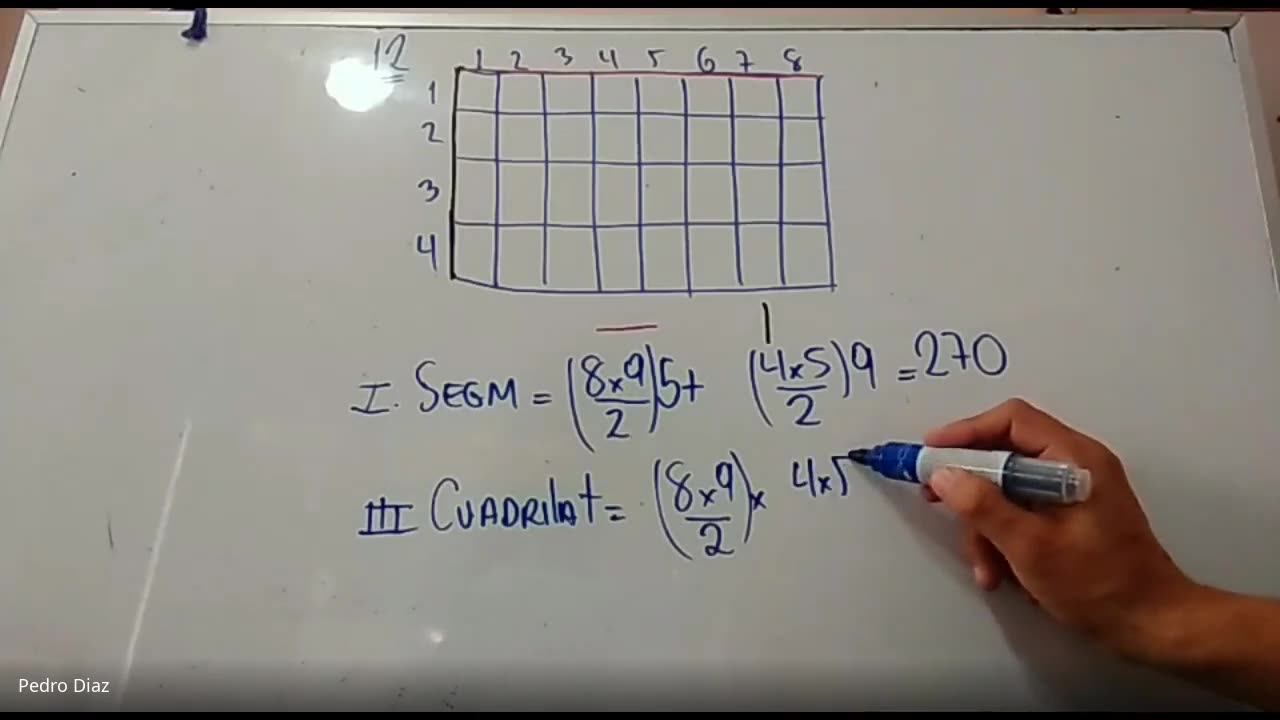 12
1 2 3 4 5 6 7 8
1
2
3
4
I. SEGM = (8x9/2)5+ (4x5/2)9 = 270
III CUADRILAT = (8x9/2)x 4x5
Pedro Diaz